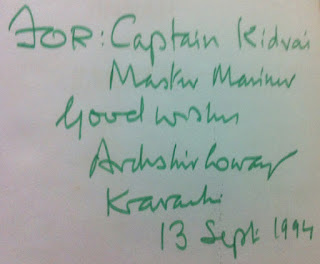 FOR: Captain Kidvai
Master Mariner
Good wishes
Ardeshir Cowasjee
Karachi
13 Sept: 1994